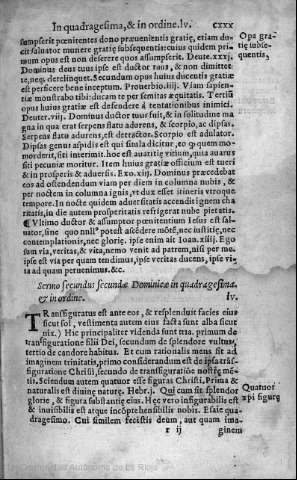 In quadragesima, & in ordine. lv. cxxx
sumpserit pœnitentes dono præuenientis gratię, etiam du-
cit salutior munere gratię subsequentis: cuius quidem pri-
mum opus est non deserere quos assumpserit. Deute. xxxj.
Dominus deus tuus ipse est ductor tuus, & non dimittet
te, neq; derelinquet. Secundum opus huius ducentis gratiæ
est perficere bene inceptum. Prouerbio. iiij. Viam sapien-
tiæ monstrabo tibi: ducam te per semitas æquitatis. Tertiũ
opus huius gratiæ est defendere à tentationibus inimici.
Deuter. viij. Dominus ductor tuus fuit, & in solitudine ma
gna in qua erat serpens flatu adurens, & scorpio, ac dipsas.
Serpens flatu adurens, est detractor. Scorpio est adulator.
Dipsas genus aspidis est qui situla dicitur, eo q̃ quem mo-
morderit, siti interimit. hoc est auaritię vitium, quia auarus
siti pecuniæ moritur. Item huius gratiæ officium est tueri
& in prosperis & aduersis. Exo. xiij. Dominus præcedebat
eos ad ostendendum viam per diem in columna nubis, &
per noctem in columna ignis, vt dux esset itineris vtroque
tempore. In nocte quidem aduersitatis accendit ignem cha
ritatis, in die autem prosperitatis refrigerat nube pietatis.
¶ Vltimo ductor & assumptor pœnitentium Iesus est sal-
uator, sine quo null⁹ potest ascẽdere mõtẽ, nec iustitię, nec
contemplationis, nec glorię. ipse enim ait Ioan. xiiij. Ego
sum via, veritas, & vita, nemo venit ad patrem, nisi per me.
ipse est via per quam tendimus, ipse veritas ducens, ipse vi-
ta ad quam peruenimus. &c.
Opa gra-
tię subse-
quentis,
Sermo secundus secundæ Dominicæ in quadragesima.
& in ordine. lv.
TRansfiguratus est ante eos, & resplenduit facies eius
sicut sol, vestimenta autem eius facta sunt alba sicut
nix.) Hic principaliter videnda sunt tria. primum de
transfiguratione filii Dei, secundum de splendore vultus,
tertio de candore habitus. Et cum rationalis mens sit ad
imaginem trinitatis, primo considerandum est de ipsa trãsfi-
figuratione Christi, secundo de transfiguratiõe nostrę mẽ-
tis. Sciendum autem quatuor esse figuras Christi. Prima &
naturalis est diuinę naturę. Hebr. j. Qui cum sit splendor
glorię, & figura substantię eius. Hęc vero infigurabilis est
& inuisibilis est atque incõprehensibilis nobis. Esaię qua-
dragesimo. Cui similem fecistis deum, aut quam ima-
Quatuor
xpi figurę
r ij ginem
Comunidad Autónoma de La Rioja